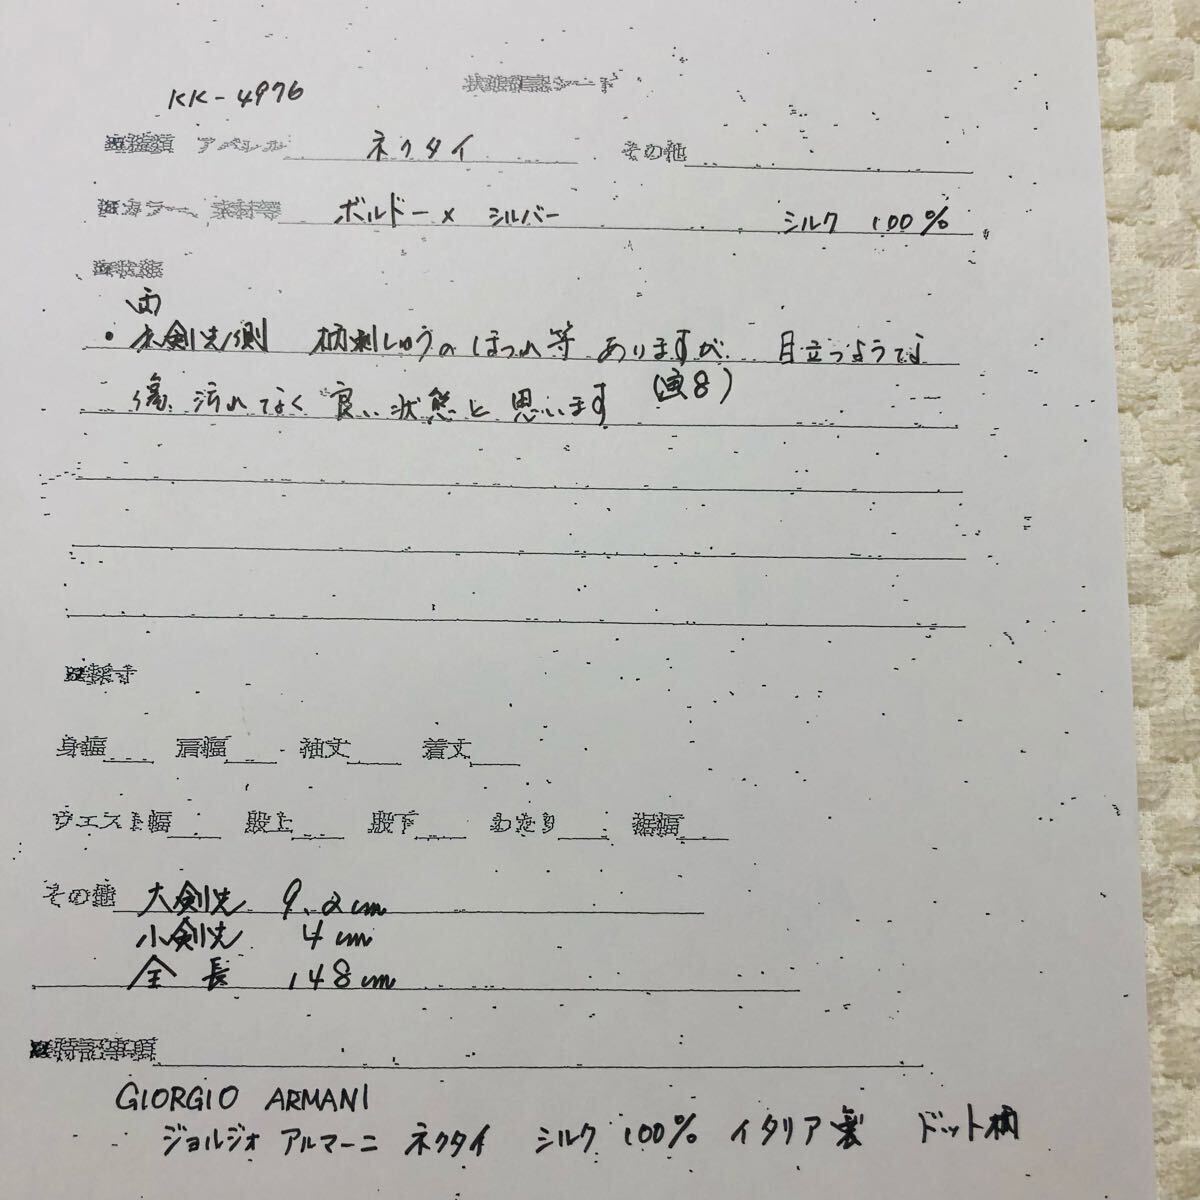 状態確認シート
KK-4976
■種類 アパレル ネクタイ その他
■カラー、素材等 ボルドー× シルバー シルク 100%
■状態
・大剣先側 柄刺しゅうのほつれ等 ありますが 目立つようでな
傷、汚れてなく 良い状態と思います (画8)
■採寸
身幅 肩幅 袖丈 着丈
ウエスト幅 股上 股下 わたり 裾幅
その他 大剣先 9.2cm
小剣先 4cm
全長 148cm
■特記事項
GIORGIO ARMANI
ジョルジオ アルマーニ ネクタイ シルク 100% イタリア製 ドット柄